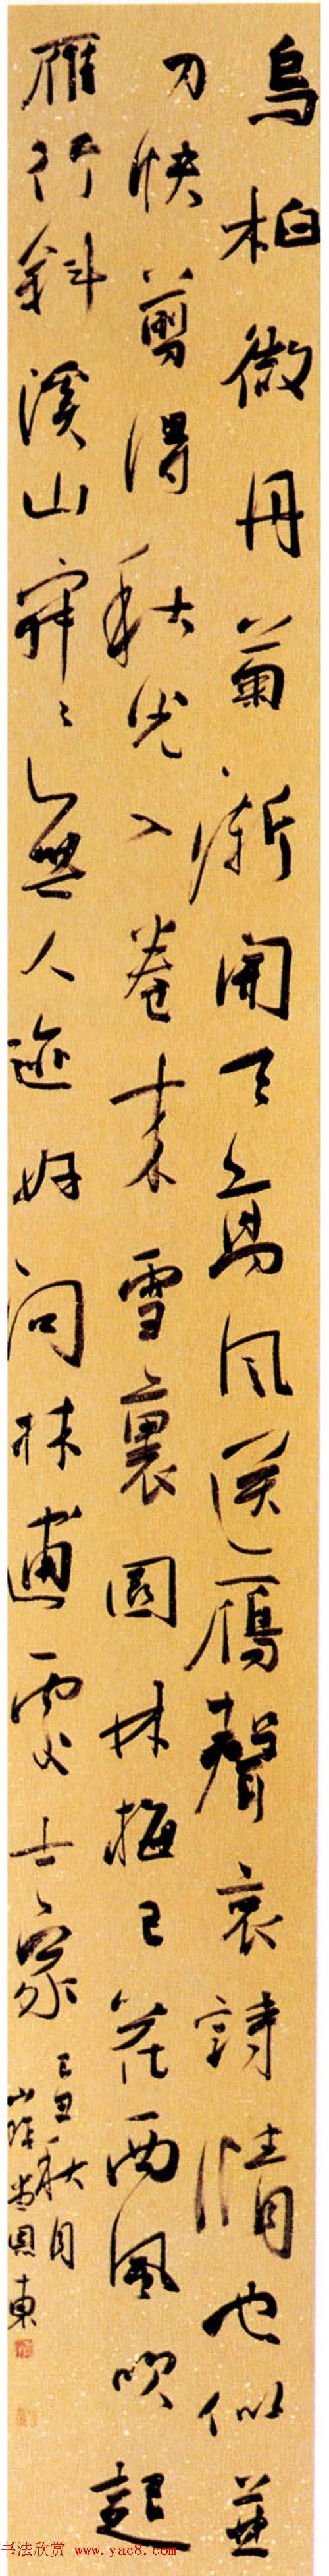 烏桕微丹菊漸開天高風送鴈聲哀詩情也似並
刀快剪得秋光入卷來雪裏園林梅已花西風吹起
雁行斜溪山寂〻無人迹好問林逋處士家
己丑秋月
书法欣赏 www.yac8.com